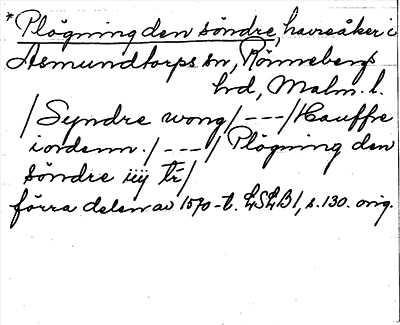 *Plögning den söndre, havreåker i
Asmundtorps sn, Rönnebergs
hrd, Malm. l.
/Syndre wong/---/Hauffre
iordenn./---/Plögning den
söndre iiij tr/
förra delen av 1570-t. LSLB1, s. 130. orig.